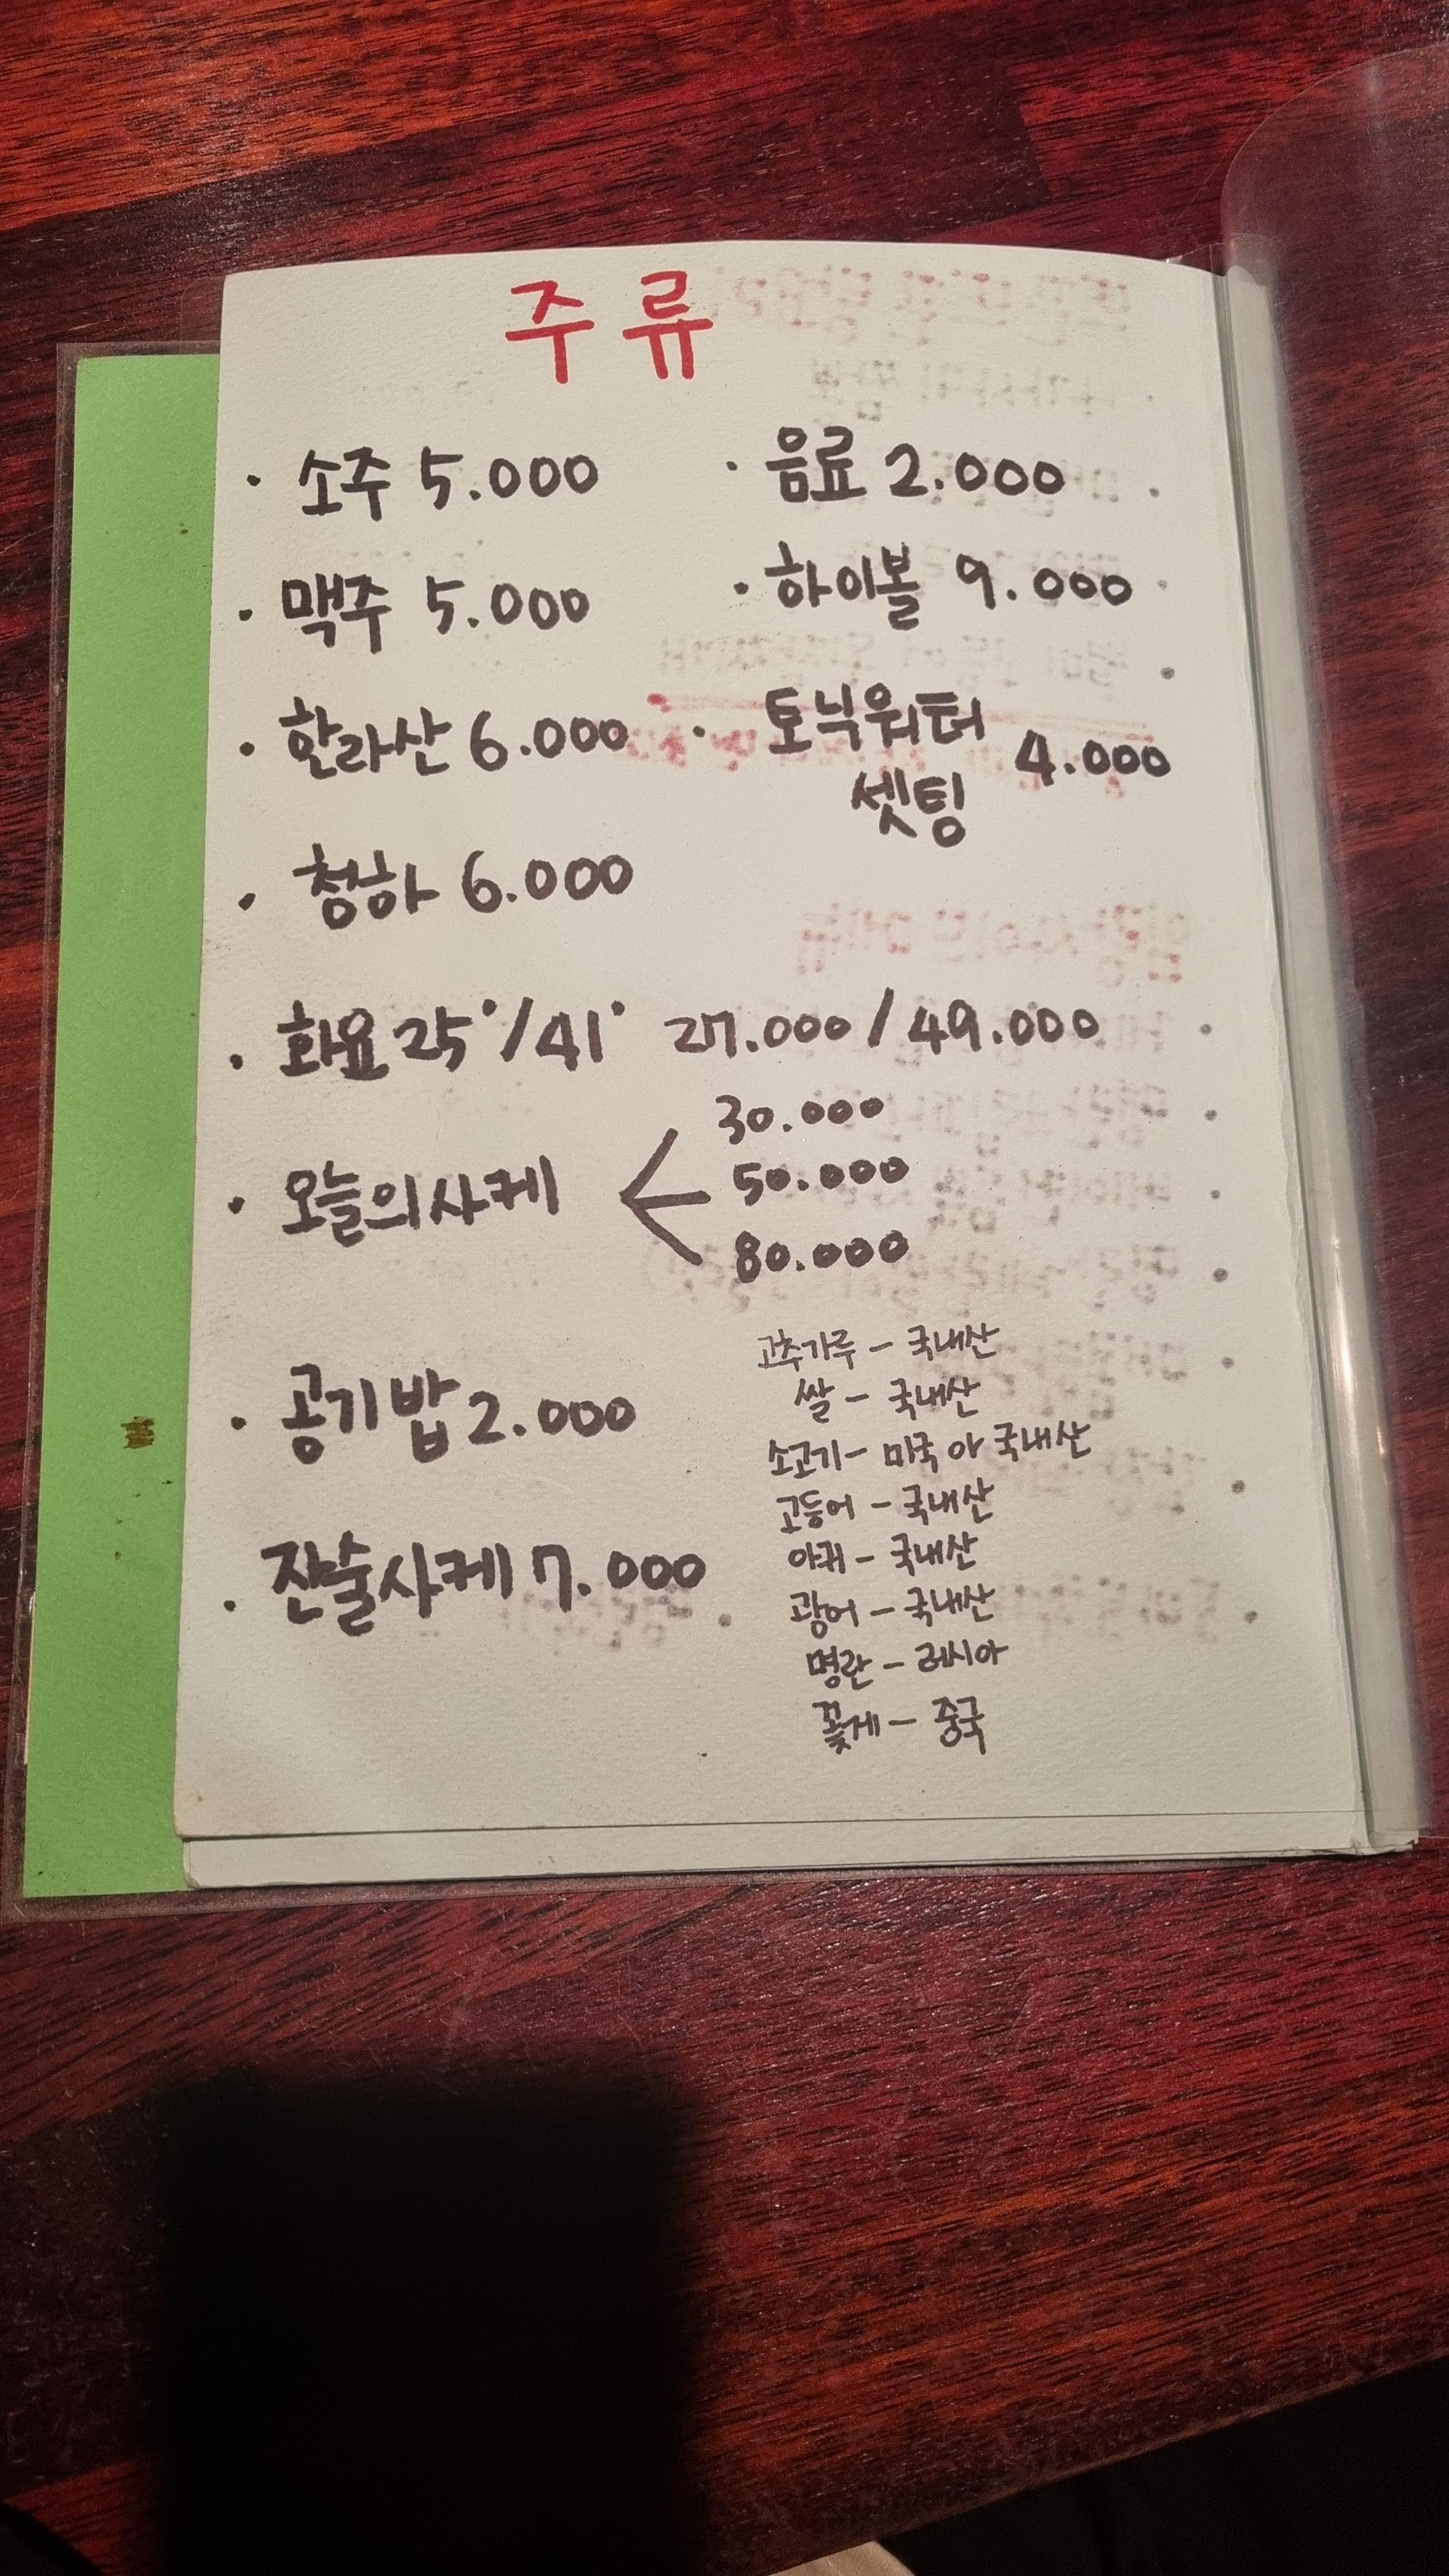 주류
· 소주 5.000
· 맥주 5.000
· 한라산 6.000
· 청하 6.000
· 음료 2.000
· 하이볼 9.000
· 토닉워터
셋팅 4.000
· 화요 25°/41° 27.000 / 49.000
· 오늘의사케
30.000
50.000
80.000
· 공기밥 2.000
· 잔술사케 7.000
고추가루 - 국내산
쌀 - 국내산
소고기 - 미국아 국내산
고등어 - 국내산
아귀 - 국내산
광어 - 국내산
명란 - 러시아
꽃게 - 중국